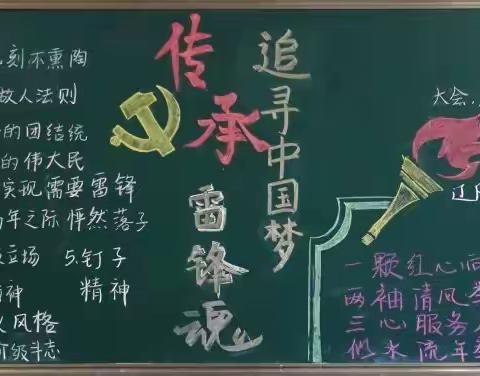 刻不熏陶
做人法则
的团结统
的伟大民
实现需要雷锋
年之际 怦然落子
立场 5.钉子
神 精神
义风格
级斗志
传承
雷锋魂
追寻中国梦
大会,
一颗红心向
两袖清风
三心服务
似水流年